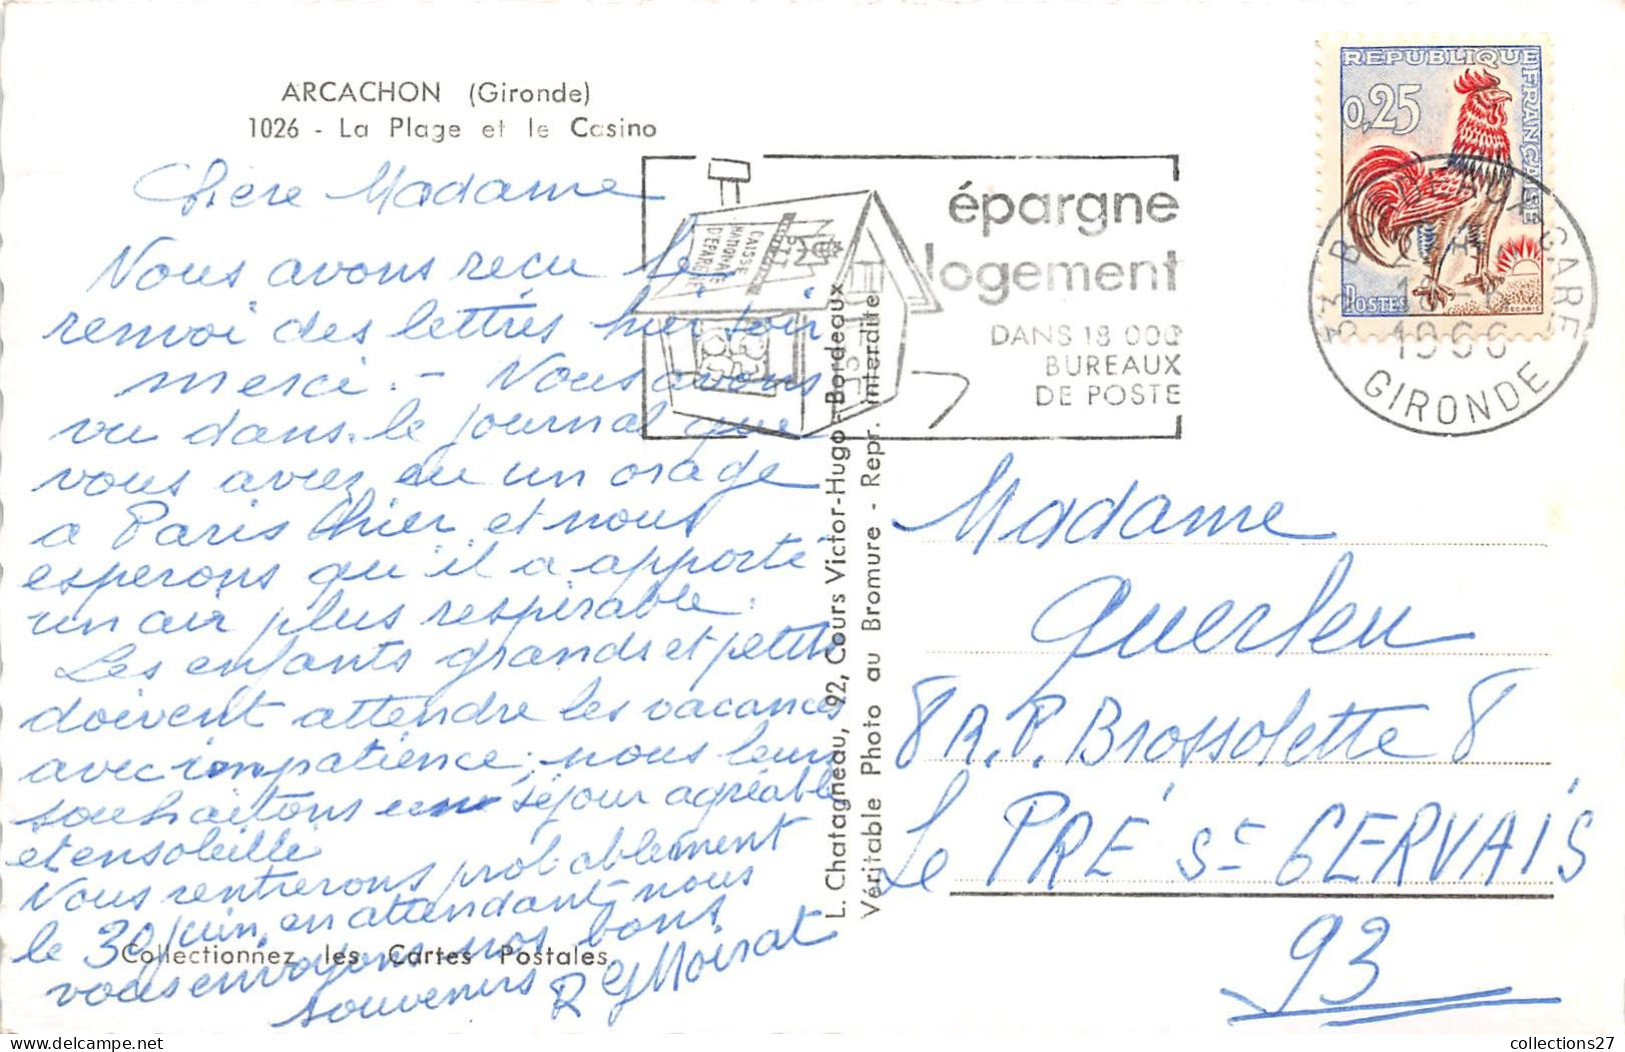 ARCACHON (Gironde)
1026 - La Plage et le Casino
Chère Madame
Nous avons reçu le
renvoi des lettres hier soir
merci. - Nous avons
vu dans le journal que
vous aviez eu un orage
a Paris hier et nous
esperons qu'il a apporté
un air plus respirable.
Les enfants grands et petits
doivent attendre les vacances
avec impatience; nous leurs
souhaitons un séjour agréable
et ensoleillé
Nous rentrerons probablement
le 30 juin, en attendant nous
vous envoyons nos bons
souvenirs R G Moisat
Collectionnez les Cartes Postales
L. Chatagneau, 92, Cours Victor-Hugo - Bordeaux
Véritable Photo au Bromure - Repr. interdite
CAISSE
NATIONALE
D'ÉPARGNE
épargne
logement
DANS 18 000
BUREAUX
DE POSTE
REPUBLIQUE FRANÇAISE
0,25
POSTES
DECARIS
33 BORDEAUX GARE
1966
GIRONDE
Madame
Querleu
8 R. P. Brossolette 8
Le PRÉ St GERVAIS
93
collections27